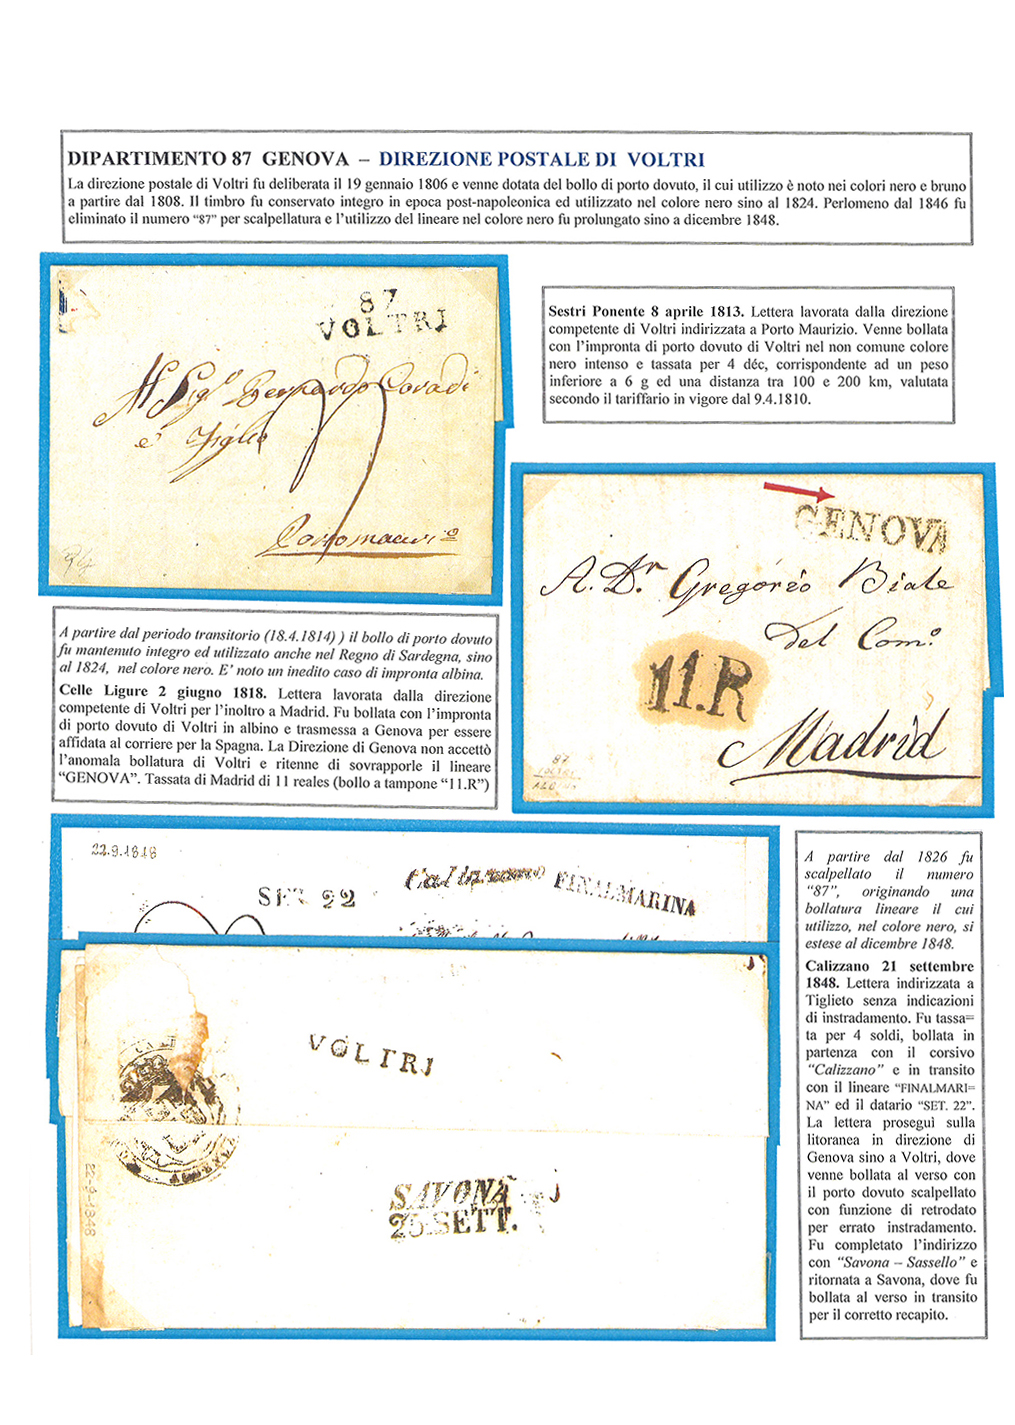 DIPARTIMENTO 87 GENOVA – DIREZIONE POSTALE DI VOLTRI
La direzione postale di Voltri fu deliberata il 19 gennaio 1806 e venne dotata del bollo di porto dovuto, il cui utilizzo è noto nei colori nero e bruno
a partire dal 1808. Il timbro fu conservato integro in epoca post-napoleonica ed utilizzato nel colore nero sino al 1824. Perlomeno dal 1846 fu
eliminato il numero "87" per scalpellatura e l'utilizzo del lineare nel colore nero fu prolungato sino a dicembre 1848.
87
VOLTRI
Sig.
Bernardo Coradi
e Figlio
Portomauri.o
Sestri Ponente 8 aprile 1813. Lettera lavorata dalla direzione
competente di Voltri indirizzata a Porto Maurizio. Venne bollata
con l'impronta di porto dovuto di Voltri nel non comune colore
nero intenso e tassata per 4 déc, corrispondente ad un peso
inferiore a 6 g ed una distanza tra 100 e 200 km, valutata
secondo il tariffario in vigore dal 9.4.1810.
GENOVA
A. Dn Gregorio Biale
del Com.o
11.R
Madrid
87
VOLTRI
A partire dal periodo transitorio (18.4.1814) ) il bollo di porto dovuto
fu mantenuto integro ed utilizzato anche nel Regno di Sardegna, sino
al 1824, nel colore nero. E' noto un inedito caso di impronta albina.
Celle Ligure 2 giugno 1818. Lettera lavorata dalla direzione
competente di Voltri per l'inoltro a Madrid. Fu bollata con l'impronta
di porto dovuto di Voltri in albino e trasmessa a Genova per essere
affidata al corriere per la Spagna. La Direzione di Genova non accettò
l'anomala bollatura di Voltri e ritenne di sovrapporle il lineare
"GENOVA". Tassata di Madrid di 11 reales (bollo a tampone "11.R")
22.9.1848
SET 22
Calizzano
FINALMARINA
VOLTRI
SAVONA
25.SETT.
22-9-1848
A partire dal 1826 fu
scalpellato il numero
"87", originando una
bollatura lineare il cui
utilizzo, nel colore nero, si
estese al dicembre 1848.
Calizzano 21 settembre
1848. Lettera indirizzata a
Tiglieto senza indicazioni
di instradamento. Fu tassa=
ta per 4 soldi, bollata in
partenza con il corsivo
"Calizzano" e in transito
con il lineare "FINALMARI=
NA" ed il datario "SET. 22".
La lettera proseguì sulla
litoranea in direzione di
Genova sino a Voltri, dove
venne bollata al verso con
il porto dovuto scalpellato
con funzione di retrodato
per errato instradamento.
Fu completato l'indirizzo
con "Savona – Sassello" e
ritornata a Savona, dove fu
bollata al verso in transito
per il corretto recapito.